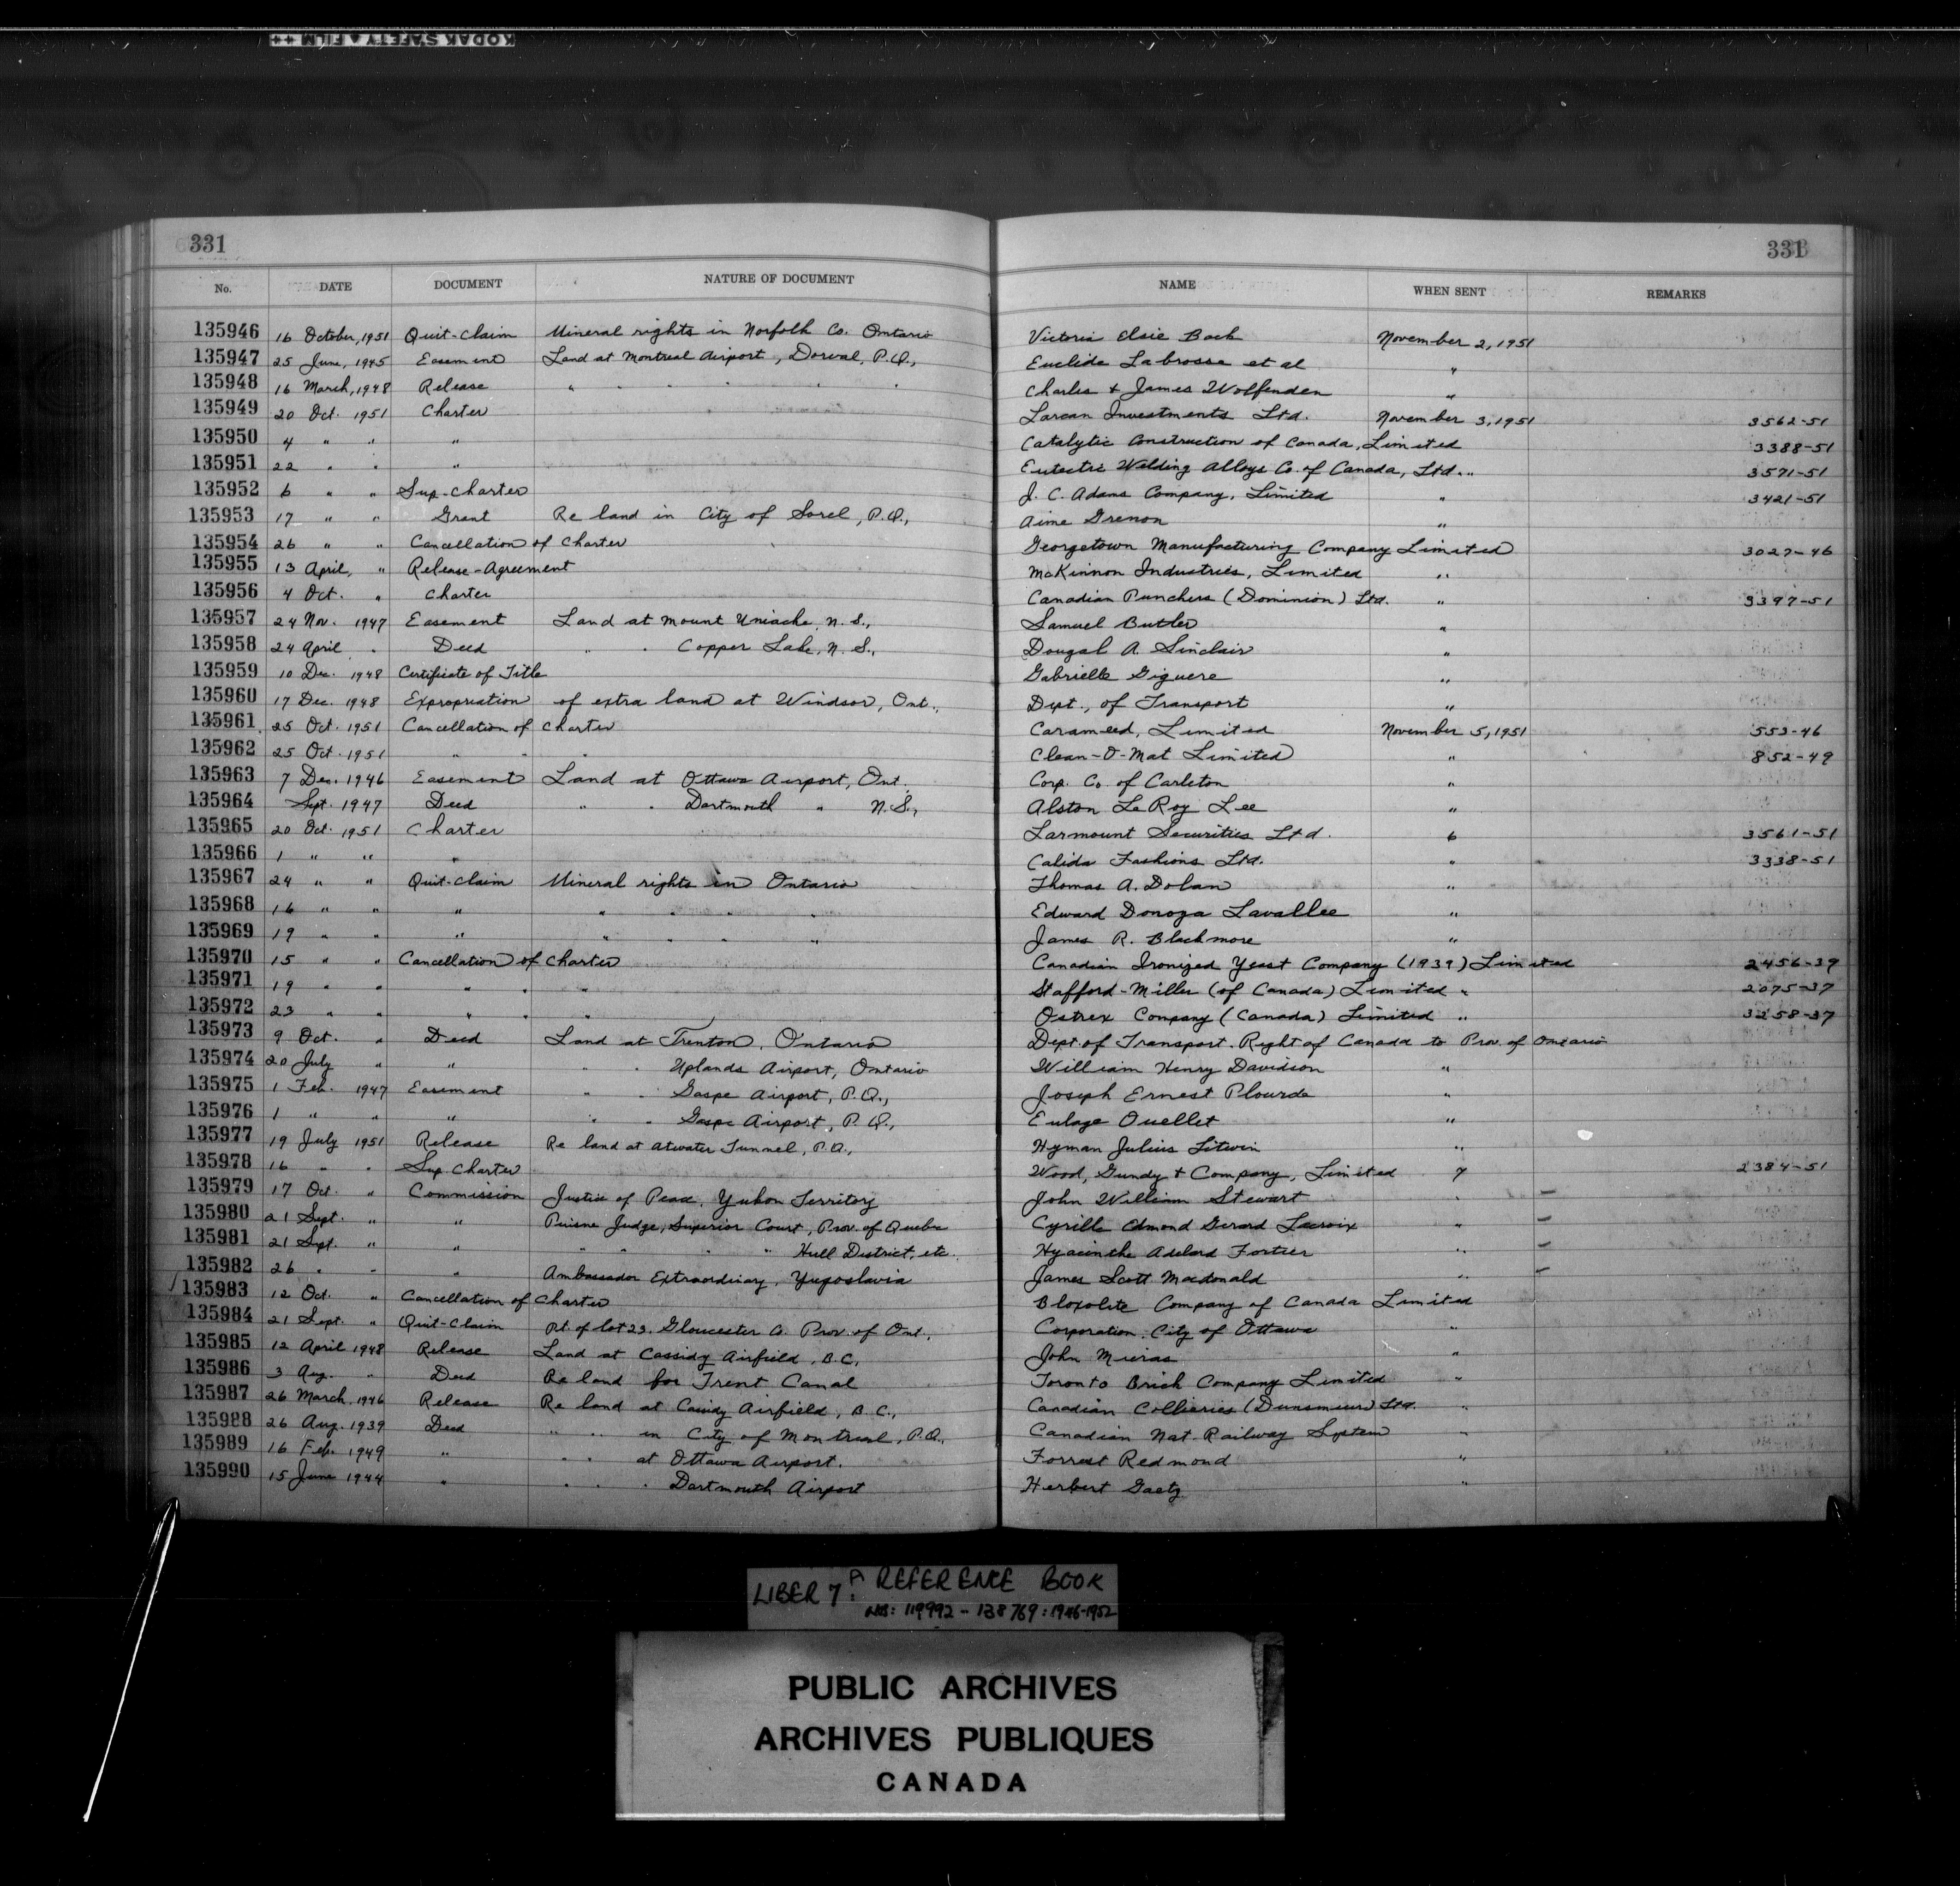 KODAK SAFETY FILM ++
331 331
No. DATE DOCUMENT NATURE OF DOCUMENT NAME WHEN SENT REMARKS
135946 16 October, 1951 Quit-Claim Mineral rights in Norfolk Co. Ontario Victoria Elsie Back November 2, 1951
135947 25 June, 1945 Easement Land at Montreal Airport, Dorval, P.Q., Euclide Labrosse et al "
135948 16 March, 1948 Release " " " " " Charles & James Wolfenden "
135949 20 Oct. 1951 Charter Larcan Investments Ltd. November 3, 1951 3562-51
135950 4 " " " Catalytic Construction of Canada, Limited 3388-51
135951 22 " " " Eutectic Welding Alloys Co. of Canada, Ltd. " 3571-51
135952 6 " " Sup-Charter J. C. Adams Company, Limited " 3421-51
135953 17 " " Grant Re land in City of Sorel, P.Q., Aime Grenon "
135954 26 " " Cancellation of Charter Georgetown Manufacturing Company Limited 3027-46
135955 13 April, " Release-Agreement McKinnon Industries, Limited "
135956 4 Oct. " Charter Canadian Punchers (Dominion) Ltd. " 3397-51
135957 24 Nov. 1947 Easement Land at Mount Uniacke, N.S., Samuel Butler "
135958 24 April " Deed " " Copper Lake, N.S., Dougal A. Sinclair "
135959 10 Dec. 1948 Certificate of Title Gabrielle Giguere "
135960 17 Dec. 1948 Expropriation of extra land at Windsor, Ont., Dept., of Transport "
135961 25 Oct. 1951 Cancellation of Charter Carameed, Limited November 5, 1951 553-46
135962 25 Oct. 1951 " " " Clean-O-Mat Limited " 852-49
135963 7 Dec. 1946 Easement Land at Ottawa Airport, Ont. Corp. Co. of Carleton "
135964 Sept. 1947 Deed " " Dartmouth " N.S., Alston LeRoy Lee "
135965 20 Oct. 1951 Charter Larmount Securities Ltd. 6 3561-51
135966 1 " " " Calida Fashions Ltd. " 3338-51
135967 24 " " Quit-Claim Mineral rights in Ontario Thomas A. Dolan "
135968 16 " " " " " " " Edward Donoza Lavallee "
135969 19 " " " " " " " James R. Blackmore "
135970 15 " " Cancellation of Charter Canadian Ironized Yeast Company (1939) Limited 2456-39
135971 19 " " " " " Stafford-Miller (of Canada) Limited " 2075-37
135972 23 " " " " " Ostrex Company (Canada) Limited " 3258-37
135973 9 Oct. " Deed Land at Trenton, Ontario Dept. of Transport. Right of Canada to Prov. of Ontario
135974 20 July " " " " Uplands Airport, Ontario William Henry Davidson "
135975 1 Feb. 1947 Easement " " Gaspe Airport, P.Q., Joseph Ernest Plourde "
135976 1 " " " " " Gaspe Airport, P.Q., Eulage Ouellet "
135977 19 July 1951 Release Re land at Atwater Tunnel, P.Q., Hyman Julius Litwin "
135978 16 " " Sup. Charter Wood, Gundy & Company, Limited 7 2384-51
135979 17 Oct. " Commission Justice of Peace, Yukon Territory John William Stewart " —
135980 21 Sept. " " Puisne Judge, Superior Court, Prov. of Quebec Cyrille Edmond Gerard Lacroix " —
135981 21 Sept. " " " " " " Hull District, etc. Hyacinthe Adelard Fortier " —
135982 26 " " " Ambassador Extraordinary, Yugoslavia James Scott Macdonald " —
135983 12 Oct. " Cancellation of Charter Bloxolite Company of Canada Limited
135984 21 Sept. " Quit-Claim Pt. of lot 23, Gloucester Co. Prov. of Ont. Corporation City of Ottawa "
135985 12 April 1948 Release Land at Cassidy Airfield, B.C., John "
135986 3 Aug. " Deed Re land for Trent Canal Toronto Brick Company Limited "
135987 26 March, 1946 Release Re land at Cassidy Airfield, B.C., Canadian Collieries (Dunsmuir) Ltd. "
135988 26 Aug. 1939 Deed " " in City of Montreal, P.Q., Canadian Nat. Railway System "
135989 16 Feb. 1949 " " " at Ottawa Airport. Forrest Redmond "
135990 15 June 1944 " " " " Dartmouth Airport Herbert Gaetz "
LIBER 7: A REFERENCE BOOK
NOS: 119992 - 138769: 1946-1952
PUBLIC ARCHIVES
ARCHIVES PUBLIQUES
CANADA